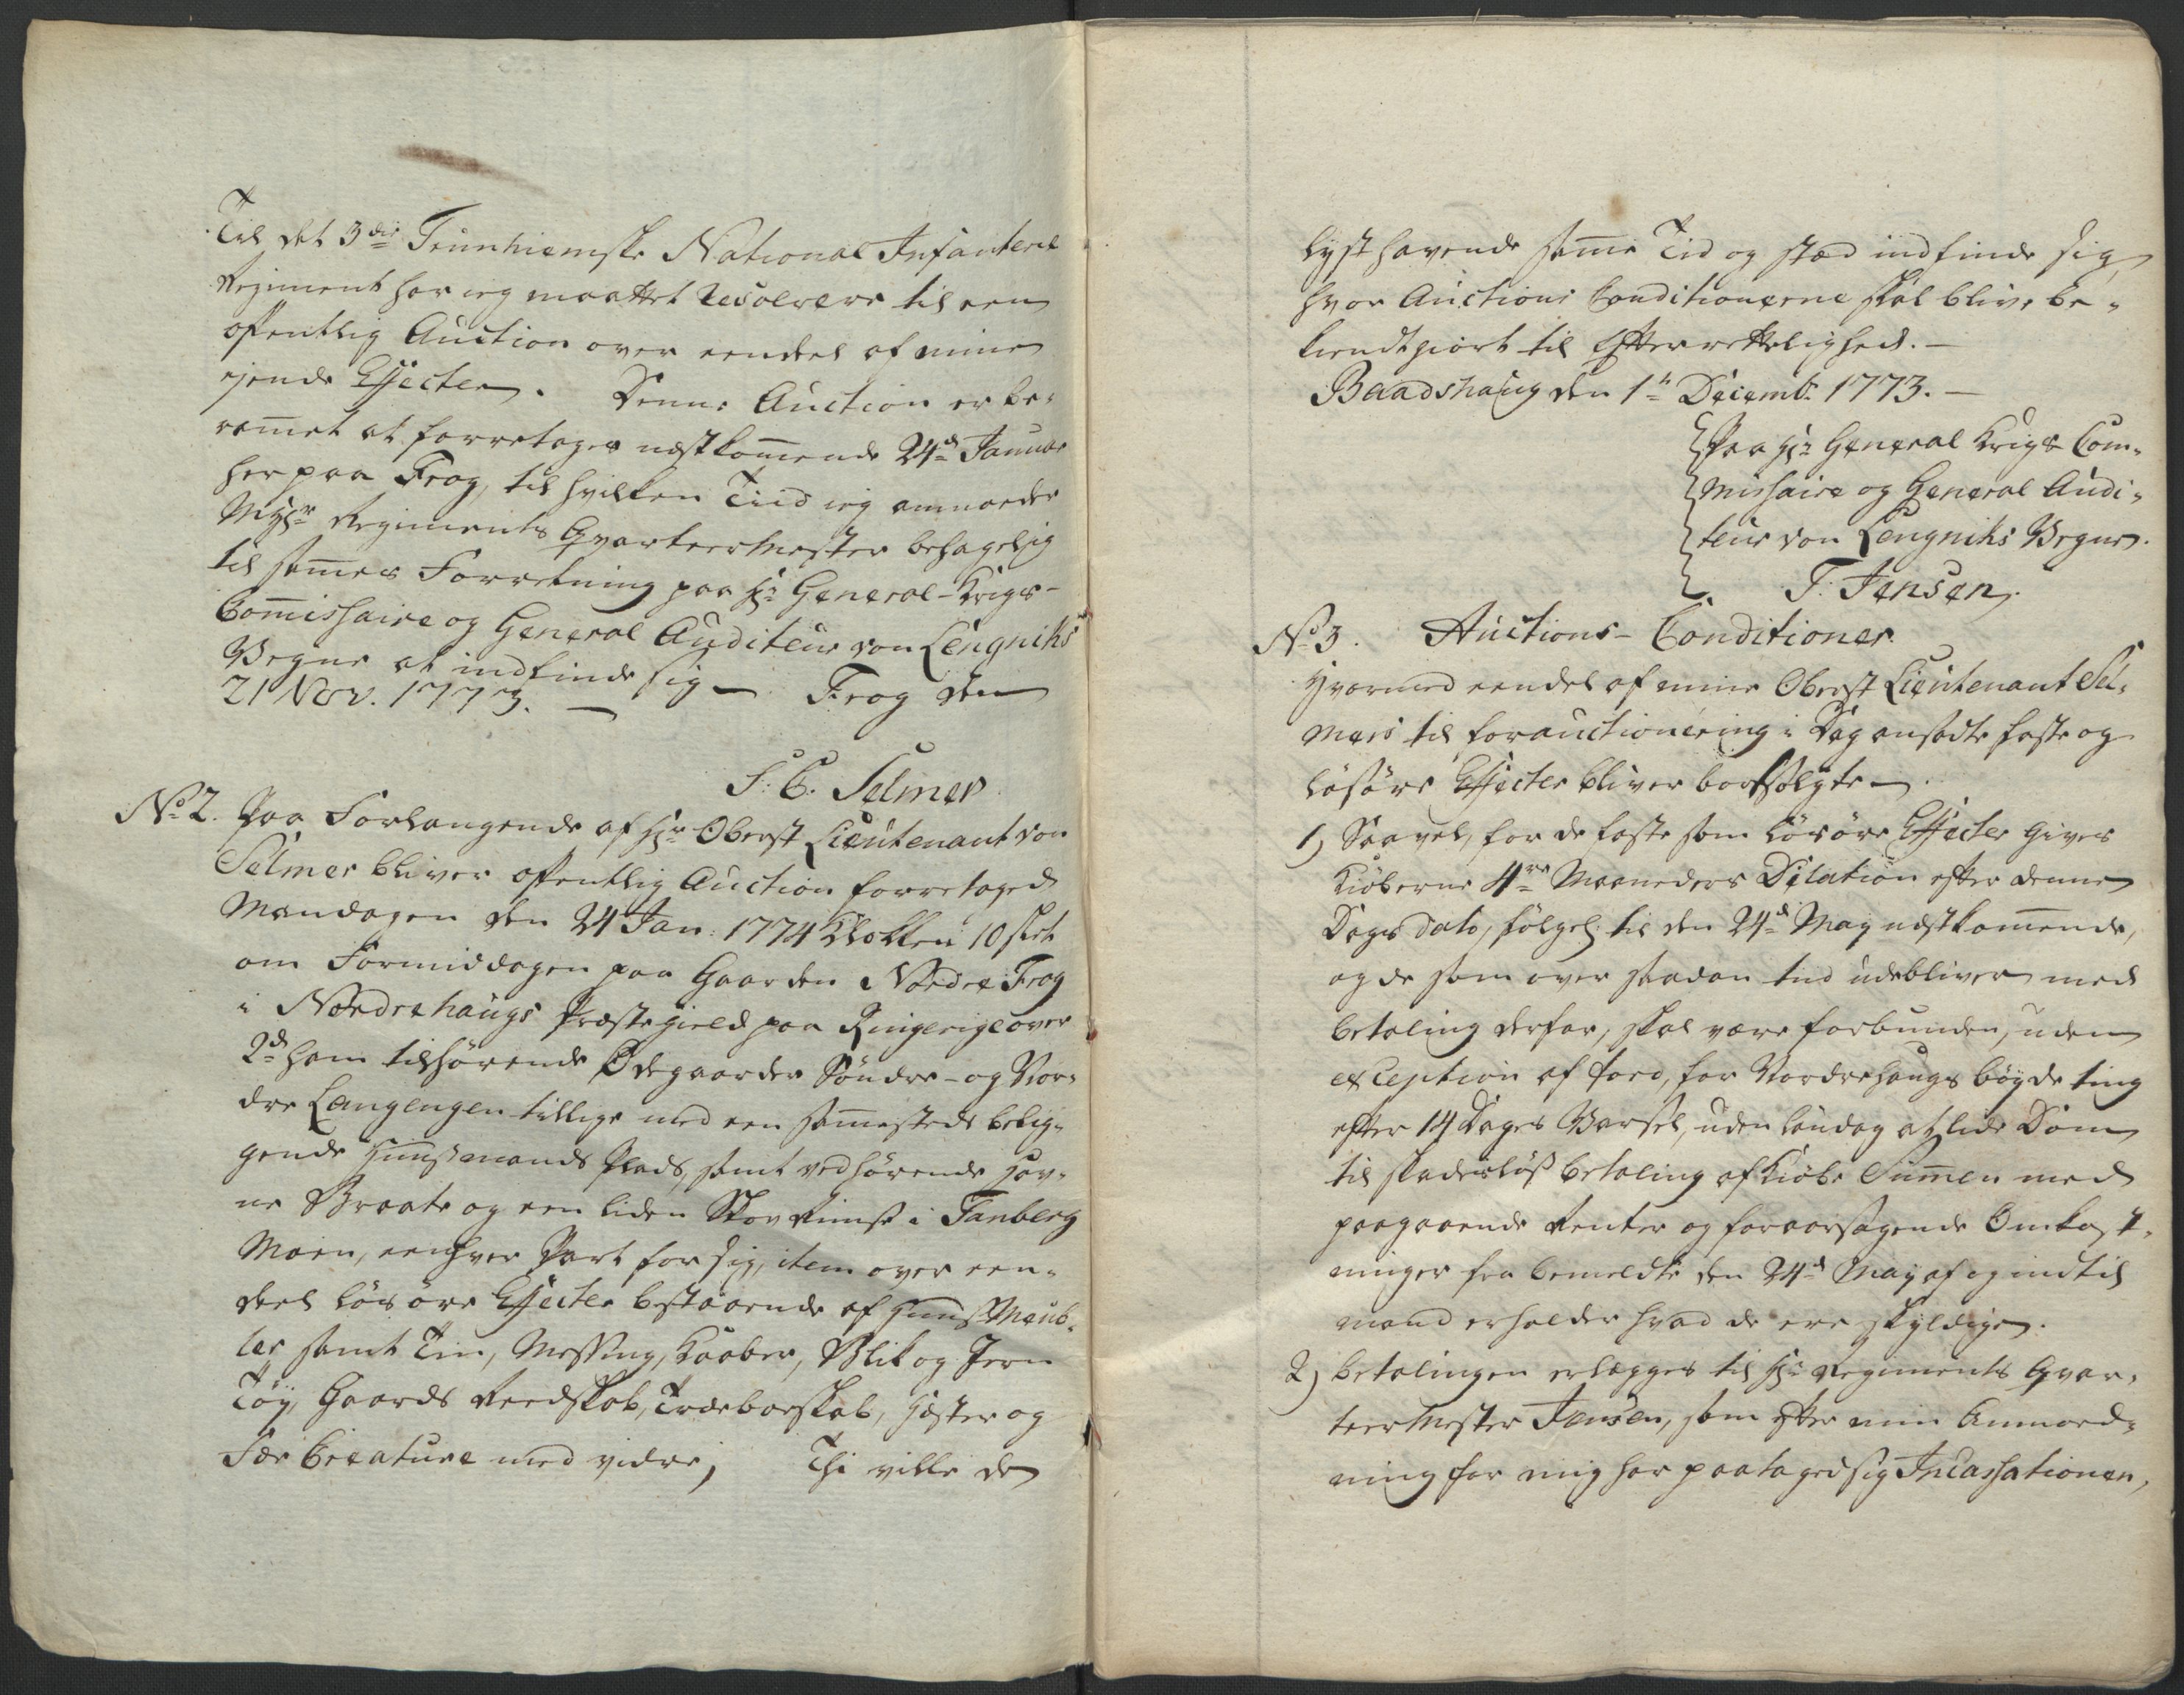 Til det 3die Trunhiemske National Infanterie
Regiment har ieg maattet Resolvere til een
offentlig Auction over eendeel af mine
ejende Effecter. Denne Auction er be-
rammet at forretages nestkommende 24de Januar
her paa Frog, til hvilken Tiid ieg anmoeder
MHHr Regiments Qvarteermester behagelig
til sammes Forretning paa Hr General-Krigs-
Commissaire og General Auditeur von Lengniks
Vegne at indfinde sig — Frog den
21 Nov. 1773. —
S: C. Selmer
No 2. Paa Forlangende af Hr Oberst Lieutenant von
Selmer bliver offentlig Auction forretaged
Mandagen den 24 Jan: 1774 Klokken 10 slet
om Formiddagen paa Gaarden Nordre Frog
i Nordrehaugs Præstegield paa Ringerige over
2de ham tilhørende Ødegaarder Søndre- og Nor-
dre Langengen tillige med een sammesteds belig-
gende Huusmands Plads, samt vedhørende Hav-
ne Braate og een liden Skov Rimse i Tanberg
Moen, eenhver Part for sig, item over een-
deel løsøre Effecter bestaaende af Huus Meub-
ler samt Tin, Messing, Kaaber, Blik og Jern
Tøy, Gaards Reedskab, Træboeskab, Hæster og
Fæe Creature med videre; Thi ville de
lysthavende samme Tid og stæd indfinde sig
hvor Auctions Conditionerne skal blive be-
kiendtgiort til Efterrettelighed. —
Baadshaug den 1te Decembr 1773. —
Paa Hr General Krigs Com-
missaire og General Audi-
teur von Lengniks Vegne.
T. Jensen.
No 3. Auctions-Conditioner.
Hvormed eendeel af mine Oberst Lieutenant Sel-
mers til forauctionering i Dag ansadte faste og
løsøre Effecter bliver bortsolgte.
1) Saavel for de faste som Løsøre Effecter gives
Kiøberne 4re Maaneders Dilation efter denne
Dags dato, følgel: til den 24de May nestkommende,
og de som over saadan tid udebliver med
betaling derfor, skal være forbunden, uden
exception af foro, for Nordrehougs bøyde ting
efter 14 Dages Varsel, uden laudag at lide Dom
til skadesløs betaling af Kiøbe Summen med
paagaaende Renter og foraarsagende Omkost-
ninger fra bemeldte den 24de May af og indtil
mand erholder hvad de ere skyldige.
2) Betalingen erlægges til Hr Regiments Qvar-
teermester Jensen, som efter min Anmoed-
ning for mig har paataged sig Incassationen,